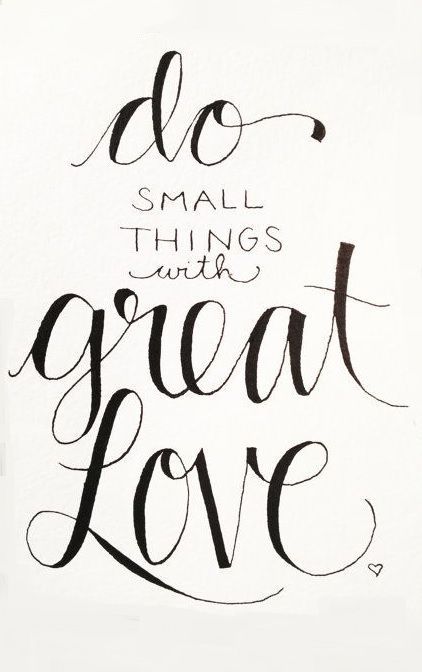 do
SMALL
THINGS
with
great
Love